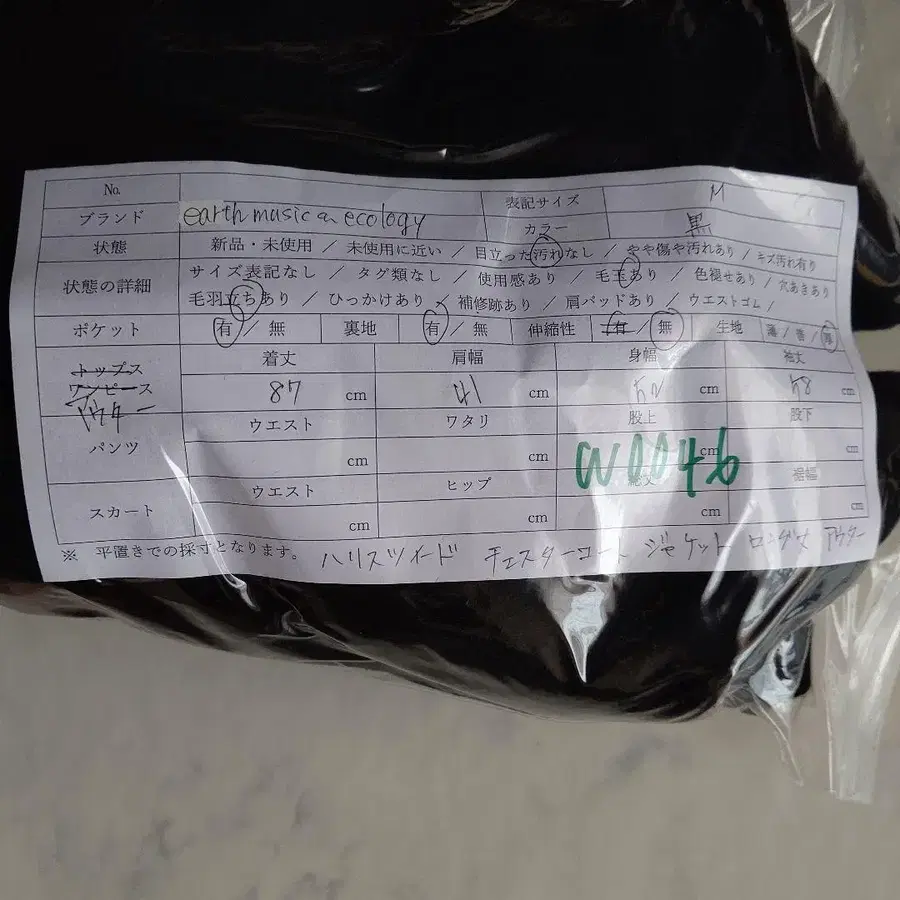 No. 表記サイズ M
ブランド earth music & ecology カラー 黒
状態 新品・未使用 / 未使用に近い / 目立った汚れなし / やや傷や汚れあり / キズ汚れ有り
状態の詳細 サイズ表記なし / タグ類なし / 使用感あり / 毛玉あり / 色褪せあり / 穴あきあり
毛羽立ちあり / ひっかけあり / 補修跡あり / 肩パッドあり / ウエストゴム /
ポケット 有 / 無 裏地 有 / 無 伸縮性 有 / 無 生地 薄 / 普 / 厚
トップス 着丈 肩幅 身幅 袖丈
ワンピース 87 cm 41 cm 52 cm 58 cm
アウター
パンツ ウエスト ワタリ 股上 股下
cm cm cm cm
W0046
スカート ウエスト ヒップ 総丈 裾幅
cm cm cm cm
※ 平置きでの採寸となります。 ハリスツイード チェスターコート ジャケット ロング丈 アウター